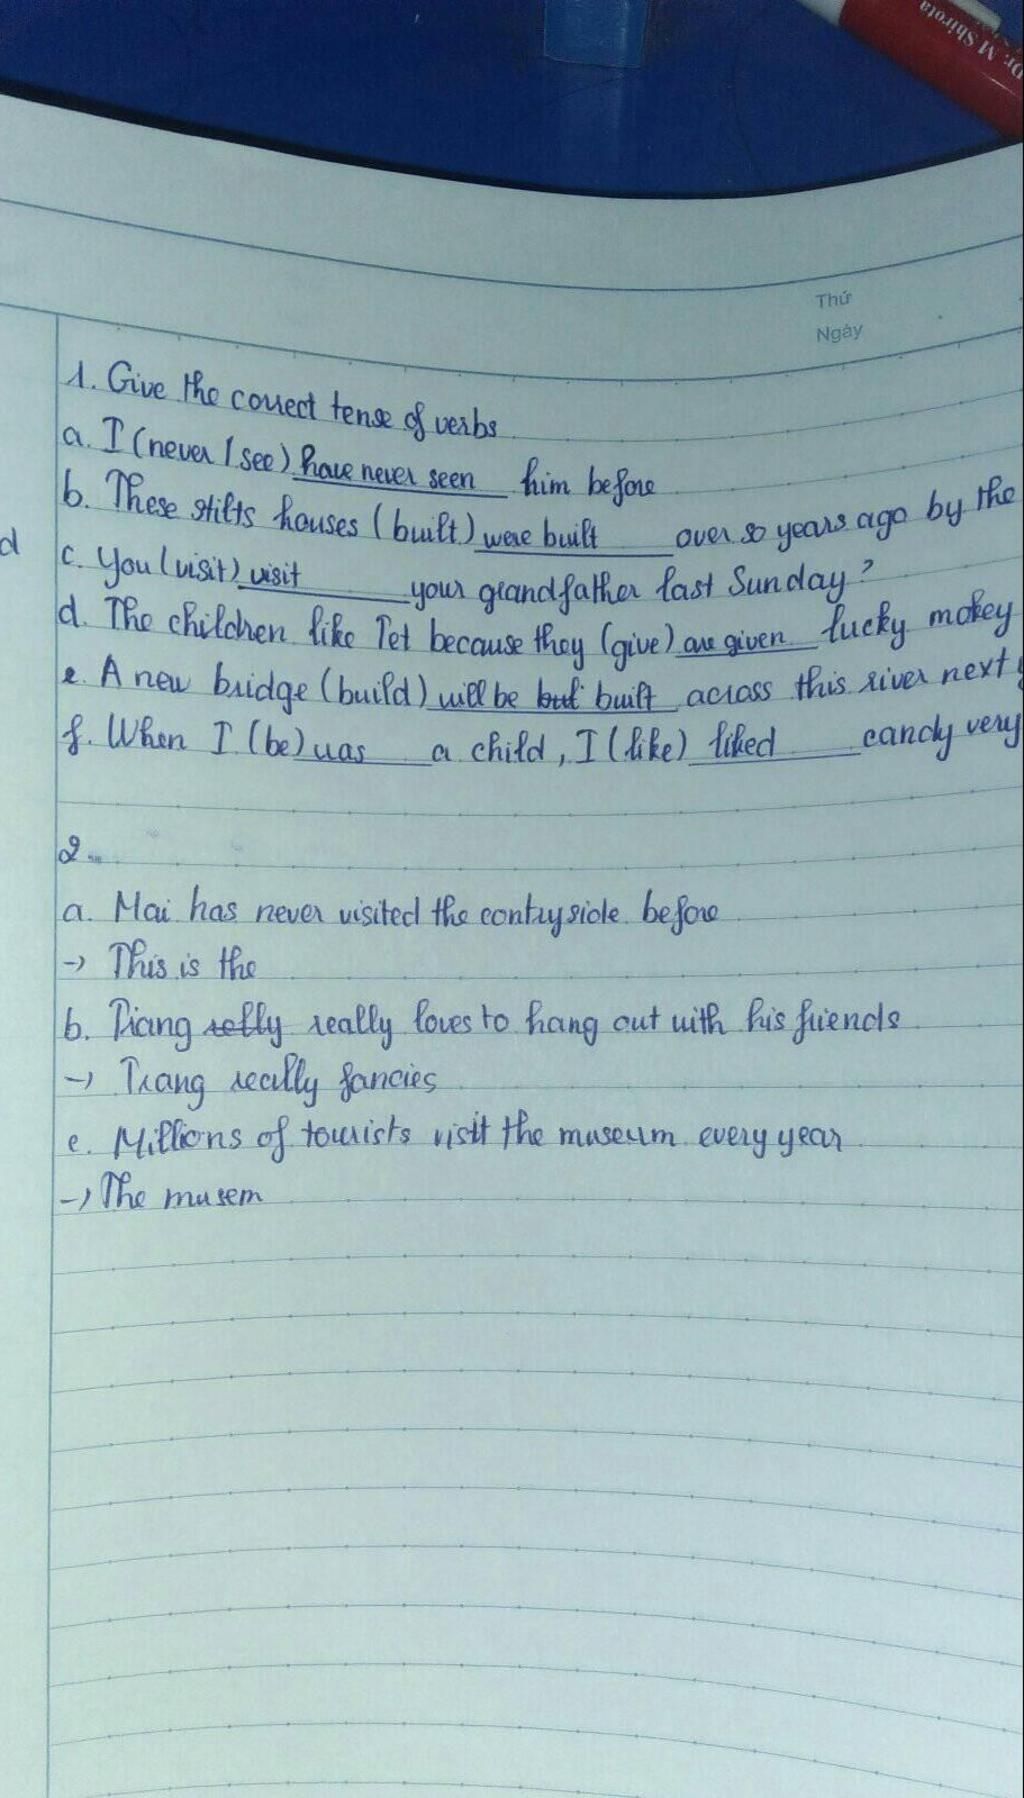 Dr. M Shirota
Thứ
Ngày
1. Give the correct tense of verbs
a. I (never / see) have never seen him before
b. These stilts houses (built) were built over 50 years ago by the
d
c. You (visit) visit your grandfather last Sunday?
d. The children like Tet because they (give) are given lucky mokey
e. A new bridge (build) will be but built across this river next
f. When I (be) was a child, I (like) liked candy very
2.
a. Mai has never visited the contryside before
-> This is the
b. Trang relly really loves to hang out with his friends
-> Trang really fancies
c. Millions of tourists visit the museum every year
-> The musem